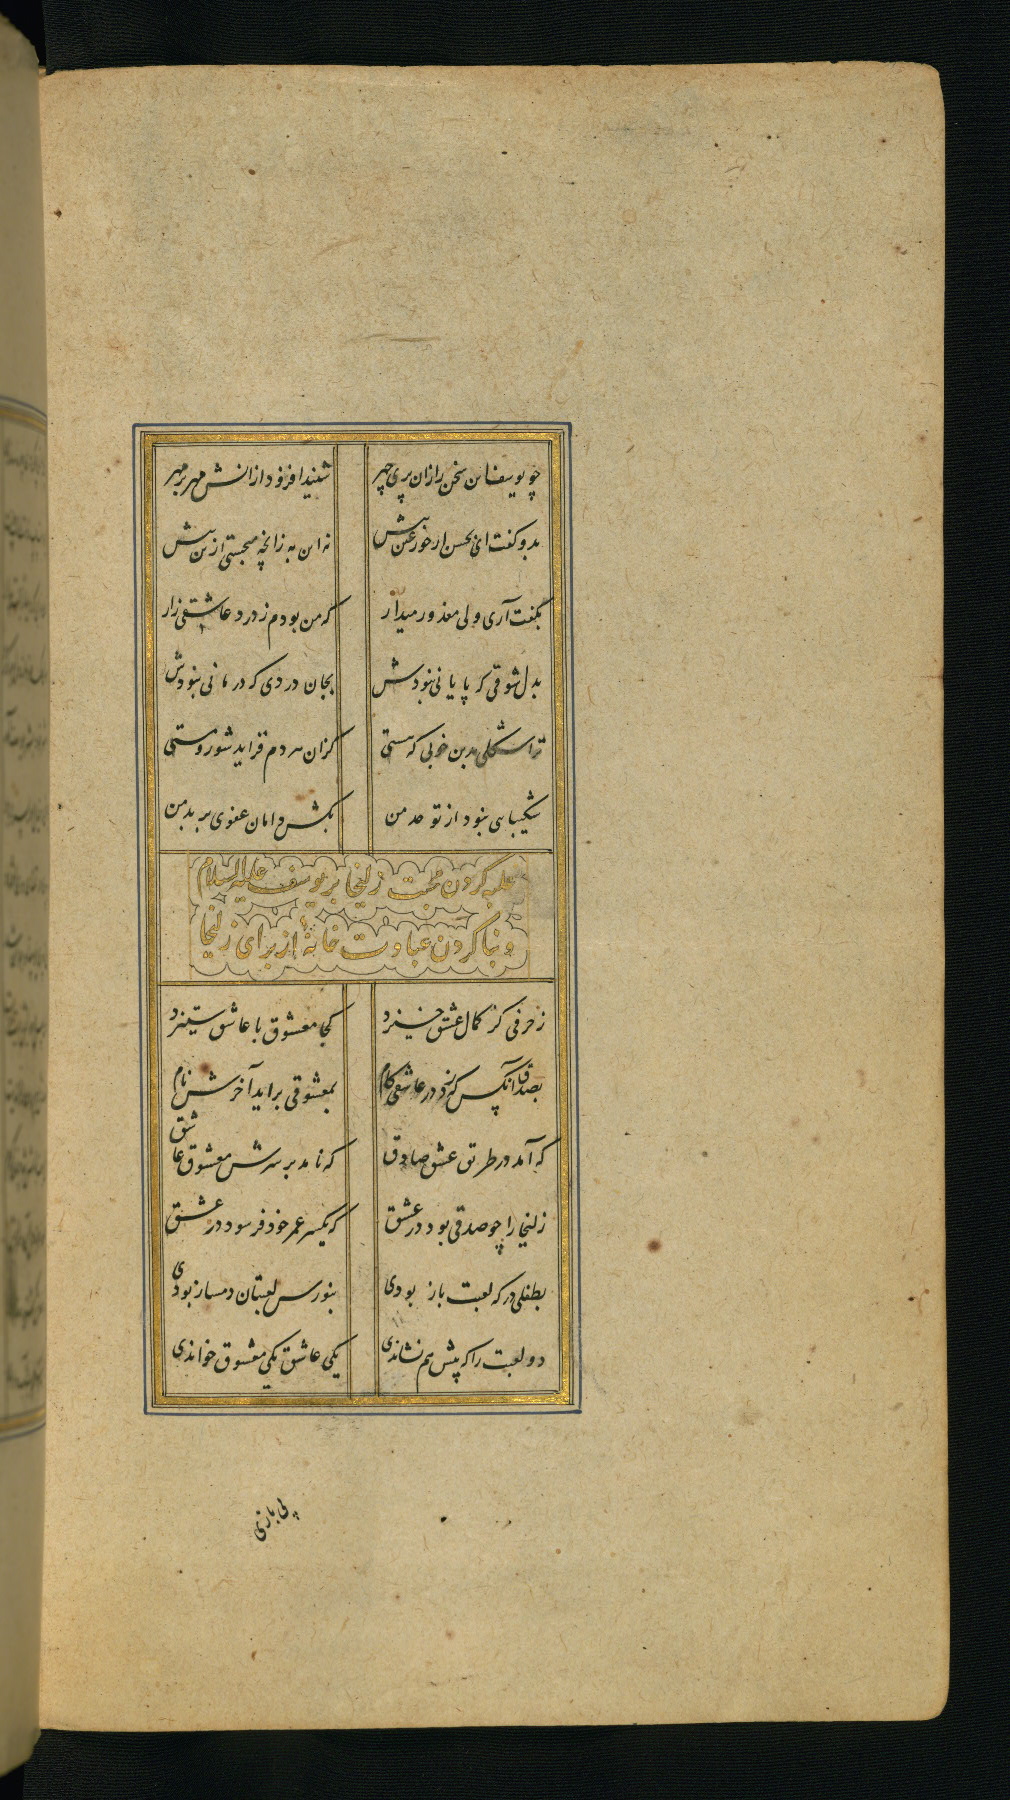 چو یوسف این سخن را زان پری چهر شنید افزود ازانش مهر بر مهر
بدو گفت ای بحسن از حور عین بیش نه این به زانچه میجستی ازین پیش
بگفت آری ولی معذور میدار که من بودم ز درد عاشقی زار
بدل شوقی که پایانی نبودش بجان دردی که درمانی نبودش
ترا شکلی بدین خوبی که هستی کزان هر دم فزاید شور و مستی
شکیبایی نبود از تو حد من بکش دامان عفوی بر بد من
غلبه کردن محبت زلیخا بر یوسف علیه السلام
و بنا کردن عبادت خانهٔ از برای زلیخا
ز حرفی کز کمال عشق خیزد کجا معشوق با عاشق ستیزد
بصدق آنکس که زد در عاشقی کام بمعشوقی براید آخرش نام
که آمد در طریق عشق صادق که نامد بر سرش معشوق عاشق
زلیخا را چو صدقی بود در عشق که یکسر عمر خود فرسود در عشق
بطفلی در که لعبت باز بودی بنورس لعبتان دمساز بودی
دو لعبت را که پیش هم نشاندی یکی عاشق یکی معشوق خواندی
پی بازی